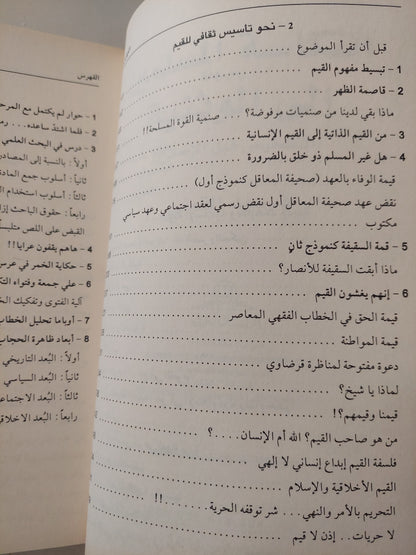 2 - نحو تأسيس ثقافي للقيم
قبل أن تقرأ الموضوع
1 - تبسيط مفهوم القيم
2 - قاصمة الظهر
ماذا بقي لدينا من صنميات مرفوضة؟ ... صنمية القوة المسلحة!!
3 - من القيم الذاتية إلى القيم الإنسانية
4 - هل غير المسلم ذو خلق بالضرورة
قيمة الوفاء بالعهد (صحيفة المعاقل كنموذج أول)
نقض عهد صحيفة المعاقل أول نقض رسمي لعقد اجتماعي وعهد سياسي
مكتوب
5 - قمة السقيفة كنموذج ثانٍ
ماذا أبقت السقيفة للأنصار؟
6 - إنهم يغشون القيم
قيمة الحق في الخطاب الفقهي المعاصر
قيمة المواطنة
دعوة مفتوحة لمناظرة قرضاوي
لماذا يا شيخ؟
قيمنا وقيمهم؟!
من هو صاحب القيم؟ الله أم الإنسان....؟
فلسفة القيم إبداع إنساني لا إلهي
القيم الأخلاقية والإسلام
التحريم بالأمر والنهي... شر توقفه الحرية.... !!
لا حريات.. إذن لا قيم
الفهرس
1 - حوار لم يكتمل مع المرحـ
2 - فلما اشتدّ ساعده..
3 - درس في البحث العلمي
أولاً : بالنسبة إلى المصادر
ثانياً : أسلوب جمع المادة
ثالثاً : أسلوب استخدام
رابعاً : حقوق الباحث إزا
القبض على اللص متلبسـ
4 - هاهم يقفون عرايا!!
5 - حكاية الخمر في عرس
6 - علي جمعة وفتواه
آلية الفتوى وتفكيك الخـ
7 - أوباما تحليل الخطاب
8 - أبعاد ظاهرة الحجاب
أولاً : البُعد التاريخي
ثانياً : البُعد السياسي
ثالثاً : البُعد الاجتماعـ
رابعاً : البُعد الأخلاقـ